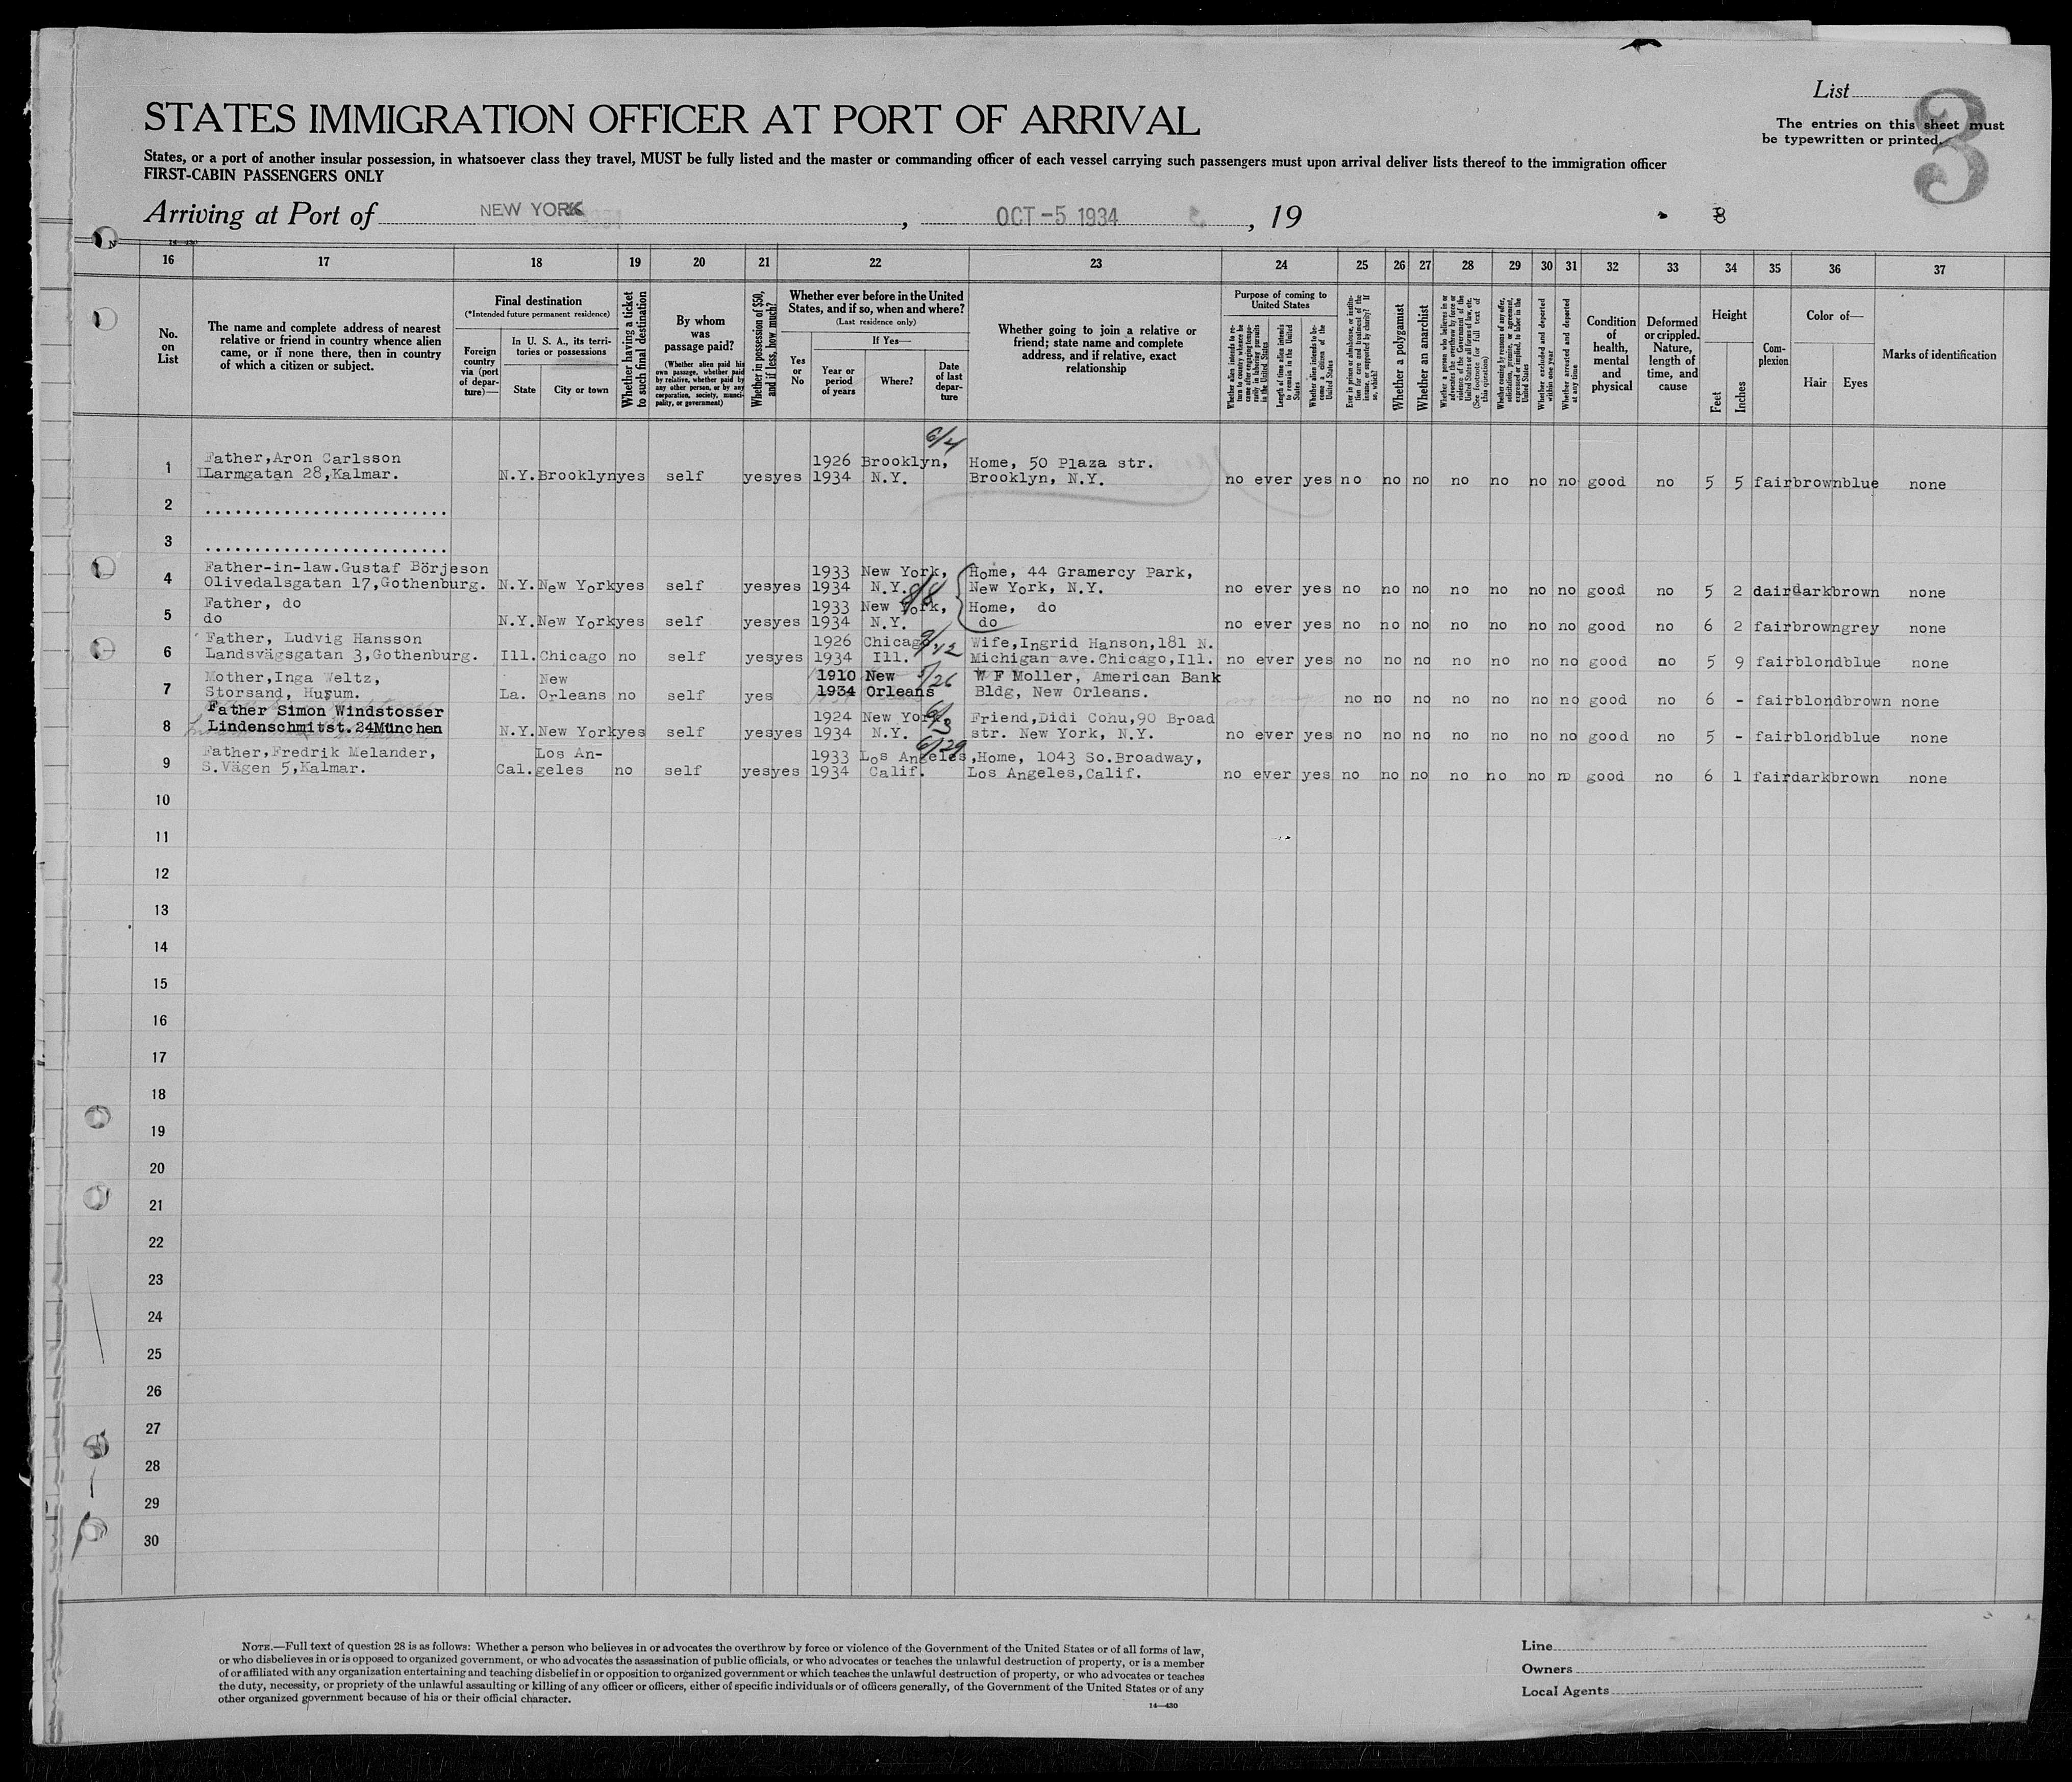 List
3
STATES IMMIGRATION OFFICER AT PORT OF ARRIVAL
The entries on this sheet must
be typewritten or printed.
States, or a port of another insular possession, in whatsoever class they travel, MUST be fully listed and the master or commanding officer of each vessel carrying such passengers must upon arrival deliver lists thereof to the immigration officer
FIRST-CABIN PASSENGERS ONLY
Arriving at Port of NEW YORK, OCT -5 1934, 19
16 17 18 19 20 21 22 23 24 25 26 27 28 29 30 31 32 33 34 35 36 37
No.
on
List
The name and complete address of nearest
relative or friend in country whence alien
came, or if none there, then in country
of which a citizen or subject.
Final destination
(*Intended future permanent residence)
Foreign
country
via (port
of depar-
ture)—
In U. S. A., its terri-
tories or possessions
State
City or town
Whether having a ticket
to such final destination
By whom
was
passage paid?
(Whether alien paid his
own passage, whether paid
by relative, whether paid by
any other person, or by any
corporation, society, munici-
pality, or government)
Whether in possession of $50,
and if less, how much?
Whether ever before in the United
States, and if so, when and where?
(Last residence only)
Yes
or
No
If Yes—
Year or
period
of years
Where?
Date
of last
depar-
ture
Whether going to join a relative or
friend; state name and complete
address, and if relative, exact
relationship
Purpose of coming to
United States
Whether alien intends to re-
turn to country whence he
came after engaging tempo-
rarily in laboring pursuits
in the United States
Length of time alien intends
to remain in the United
States
Whether alien intends to be-
come a citizen of the
United States
Ever in prison or almshouse, or institu-
tion for care and treatment of the
insane, or supported by charity? If
so, which?
Whether a polygamist
Whether an anarchist
Whether a person who believes in or
advocates the overthrow by force or
violence of the Government of the
United States or all forms of law, etc.
(See footnote for full text of
this question)
Whether coming by reason of any offer,
solicitation, promise, or agreement,
expressed or implied, to labor in the
United States
Whether excluded and deported
within one year
Whether arrested and deported
at any time
Condition
of
health,
mental
and
physical
Deformed
or crippled.
Nature,
length of
time, and
cause
Height
Feet
Inches
Com-
plexion
Color of—
Hair
Eyes
Marks of identification
6/4
Father,Aron Carlsson 1926 Brooklyn, Home, 50 Plaza str.
1 Larmgatan 28,Kalmar. N.Y. Brooklyn yes self yes yes 1934 N.Y. Brooklyn, N.Y. no ever yes no no no no no no no good no 5 5 fair brown blue none
2 .........................
3 .........................
Father-in-law.Gustaf Börjeson 1933 New York, Home, 44 Gramercy Park,
4 Olivedalsgatan 17,Gothenburg. N.Y. New York yes self yes yes 1934 N.Y. 8/8 New York, N.Y. no ever yes no no no no no no no good no 5 2 dair dark brown none
Father, do 1933 New York, Home, do
5 do N.Y. New York yes self yes yes 1934 N.Y. do no ever yes no no no no no no no good no 6 2 fair brown grey none
Father, Ludvig Hansson 1926 Chicago 9/12 Wife,Ingrid Hanson,181 N.
6 Landsvägsgatan 3,Gothenburg. Ill. Chicago no self yes yes 1934 Ill. Michigan ave.Chicago,Ill. no ever yes no no no no no no no good no 5 9 fair blond blue none
Mother,Inga Weltz, New 1910 New 5/26 W F Moller, American Bank
7 Storsand, Husum. La. Orleans no self yes 1934 Orleans Bldg, New Orleans. no no no no no no no good no 6 - fair blond brown none
Father Simon Windstosser 1924 New York, 6/3 Friend,Didi Cohu,90 Broad
8 Lindenschmitst.24München N.Y. New York yes self yes yes 1934 N.Y. str. New York, N.Y. no ever yes no no no no no no no good no 5 - fair blond blue none
Father,Fredrik Melander, Los An- 1933 Los Angeles, 6/29 Home, 1043 So.Broadway,
9 S.Vägen 5,Kalmar. Cal. geles no self yes yes 1934 Calif. Los Angeles,Calif. no ever yes no no no no no no no good no 6 1 fair dark brown none
10
11
12
13
14
15
16
17
18
19
20
21
22
23
24
25
26
27
28
29
30
NOTE.—Full text of question 28 is as follows: Whether a person who believes in or advocates the overthrow by force or violence of the Government of the United States or of all forms of law,
or who disbelieves in or is opposed to organized government, or who advocates the assassination of public officials, or who advocates or teaches the unlawful destruction of property, or is a member
of or affiliated with any organization entertaining and teaching disbelief in or opposition to organized government or which teaches the unlawful destruction of property, or who advocates or teaches
the duty, necessity, or propriety of the unlawful assaulting or killing of any officer or officers, either of specific individuals or of officers generally, of the Government of the United States or of any
other organized government because of his or their official character.
14—430
Line
Owners
Local Agents